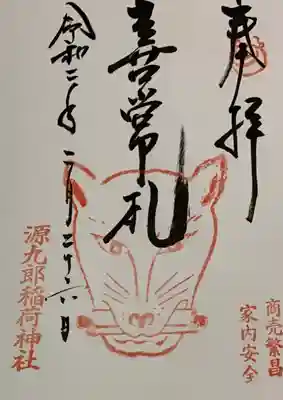 奉拝
喜常札
令和二年二月二十六日
源九郎稲荷神社
商売繁昌
家内安全